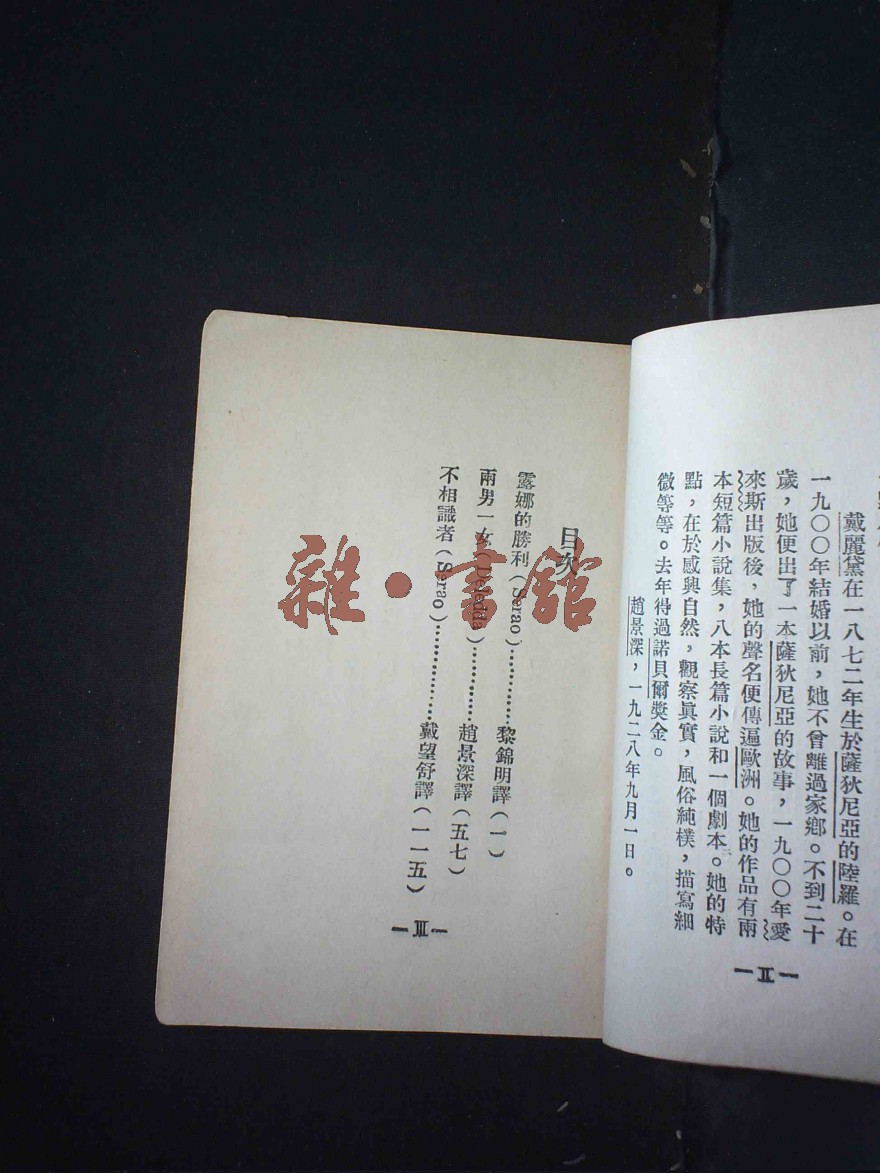 戴麗黛在一八七二年生於薩狄尼亞的陸羅。在
一九〇〇年結婚以前，她不曾離過家鄉。不到二十
歲，她便出了一本薩狄尼亞的故事，一九〇〇年愛
來斯出版後，她的聲名便傳遍歐洲。她的作品有兩
本短篇小說集，八本長篇小說和一個劇本。她的特
點，在於感與自然，觀察眞實，風俗純樸，描寫細
微等等。去年得過諾貝爾獎金。
趙景深，一九二八年九月一日。
—II—
目次
露娜的勝利（Serao）…………黎錦明譯（一）
兩男一女（Deledda）…………趙景深譯（五七）
不相識者（Serao）……………戴望舒譯（一一五）
—III—
雜·書館